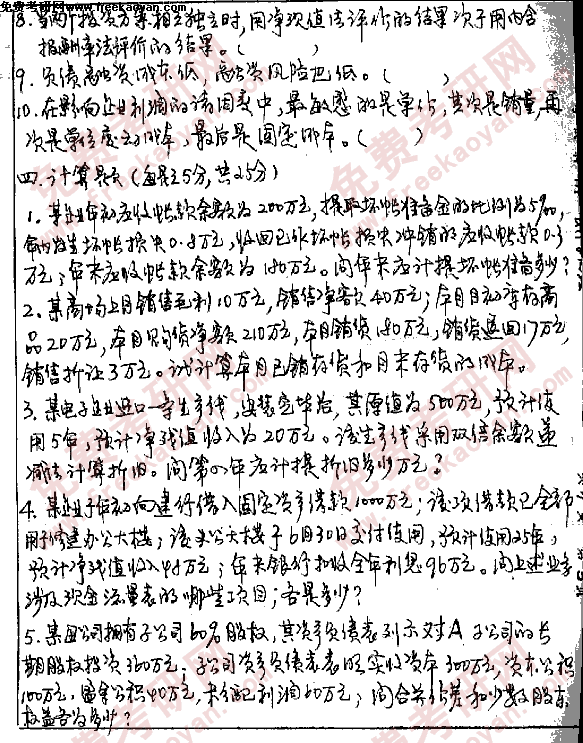 免费考研网
www.freekaoyan.com
8. 当两个投资方案相互独立时,用净现值法评价的结果次于用内含
报酬率法评价的结果。( )
9. 负债融资成本低,融资风险也低。( )
10. 在影响企业利润的诸因素中,最敏感的是单价,其次是销量,再
次是单位变动成本,最后是固定成本。( )
四. 计算题(每题5分,共25分)
1. 某企业年初应收帐款余额为200万元,提取坏帐准备金的比例为5‰,
年内发生坏帐损失0.8万元,收回已作坏帐损失冲销的应收帐款0.3
万元;年末应收帐款余额为180万元。问年末应计提坏帐准备多少?
2. 某商场上月销售毛利10万元,销售净额40万元;本月月初库存商
品20万元,本月购货净额210万元,本月销货180万元,销货退回17万元,
销售折让3万元。试计算本月已销存货和月末存货的成本。
3. 某电子企业进口一条生产线,安装完毕后,其原值为500万元,预计使
用5年,预计净残值收入为20万元。该生产线采用双倍余额递
减法计算折旧。问第 年应计提折旧多少万元?
4. 某企业年初向建行借入固定资产借款1000万元;该项借款已全部
用于修建办公大楼;该办公大楼于6月30日交付使用,预计使用25年,
预计净残值收入 万元;年末银行扣收全年利息96万元。问上述业务
涉及现金流量表的哪些项目;各是多少?
5. 某母公司拥有子公司60%股权,其资产负债表列示对A子公司的长
期股权投资360万元;子公司资产负债表表明实收资本300万元,资本公积
100万元,盈余公积40万元,未分配利润60万元;问合并价差和少数股东
权益各为多少?